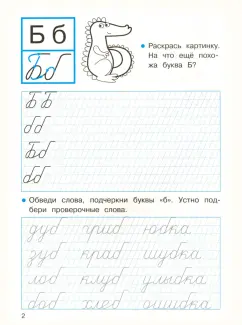 Б б
Бб
Раскрась картинку.
На что ещё похо-
жа буква Б?
Б Б
б б
Б б
б б
Обведи слова, подчеркни буквы «б». Устно под-
бери проверочные слова.
дуб гриб юбка
зуб краб шубка
лоб клуб улыбка
боб хлеб ошибка
2